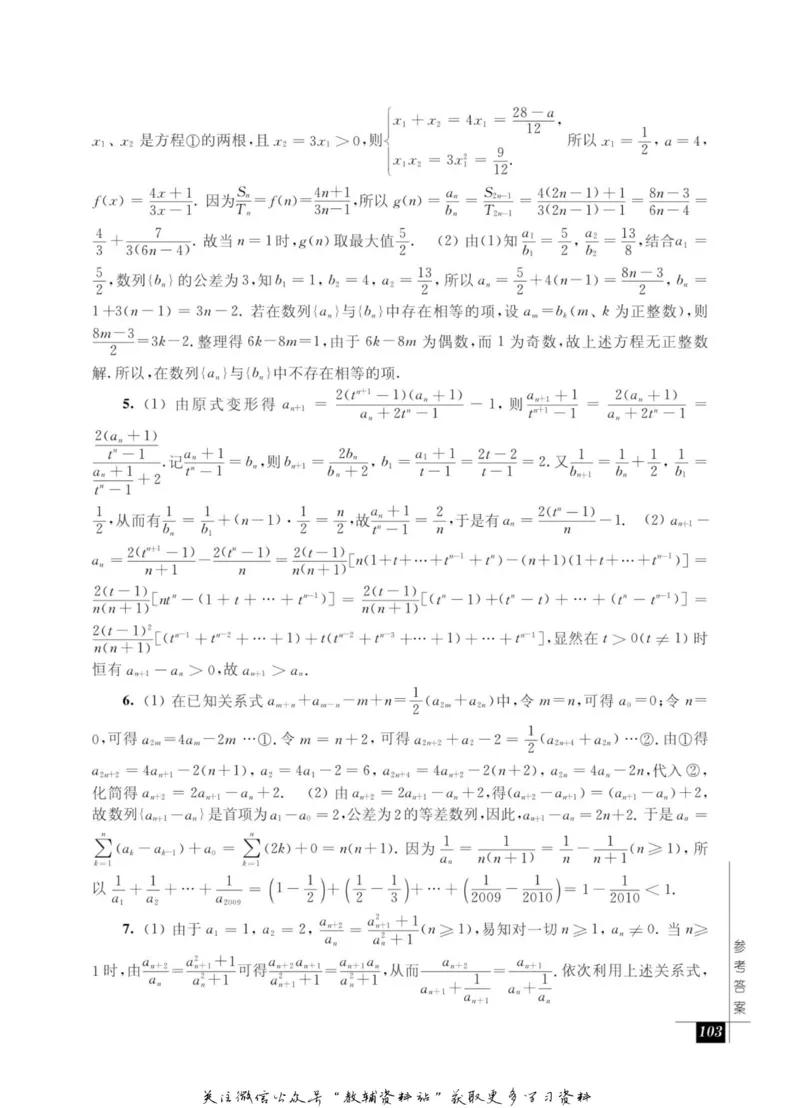 x₁、x₂ 是方程①的两根,且 x₂ = 3x₁ > 0,则 { x₁ + x₂ = 4x₁ = (28 − a)/12, x₁x₂ = 3x₁² = 9/12. 所以 x₁ = 1/2, a = 4,
f(x) = (4x+1)/(3x−1). 因为 Sₙ/Tₙ = f(n) = (4n+1)/(3n−1),所以 g(n) = aₙ/bₙ = S₂ₙ₋₁/T₂ₙ₋₁ = (4(2n−1)+1)/(3(2n−1)−1) = (8n−3)/(6n−4) =
4/3 + 7/(3(6n−4)). 故当 n = 1时, g(n) 取最大值 5/2. (2) 由(1)知 a₁/b₁ = 5/2, a₂/b₂ = 13/8,结合a₁ =
5/2,数列{bₙ}的公差为3,知b₁ = 1, b₂ = 4, a₂ = 13/2,所以 aₙ = 5/2 + 4(n−1) = (8n−3)/2, bₙ =
1+3(n−1) = 3n−2. 若在数列{aₙ}与{bₙ}中存在相等的项,设 aₘ = bₖ(m、k 为正整数),则
(8m−3)/2 = 3k−2. 整理得 6k−8m = 1,由于 6k−8m 为偶数,而 1 为奇数,故上述方程无正整数
解. 所以,在数列{aₙ}与{bₙ}中不存在相等的项.
5. (1) 由原式变形得 aₙ₊₁ = 2(tⁿ⁺¹−1)(aₙ+1)/(aₙ+2tⁿ−1) − 1,则 (aₙ₊₁+1)/(tⁿ⁺¹−1) = 2(aₙ+1)/(aₙ+2tⁿ−1) =
(2(aₙ+1)/(tⁿ−1))/((aₙ+1)/(tⁿ−1)+2). 记 (aₙ+1)/(tⁿ−1) = bₙ,则 bₙ₊₁ = 2bₙ/(bₙ+2), b₁ = (a₁+1)/(t−1) = (2t−2)/(t−1) = 2. 又 1/bₙ₊₁ = 1/bₙ + 1/2, 1/b₁ =
1/2,从而有 1/bₙ = 1/b₁ + (n−1)·1/2 = n/2,故 (aₙ+1)/(tⁿ−1) = 2/n,于是有 aₙ = 2(tⁿ−1)/n − 1. (2) aₙ₊₁ −
aₙ = 2(tⁿ⁺¹−1)/(n+1) − 2(tⁿ−1)/n = 2(t−1)/(n(n+1)) [n(1+t+⋯+tⁿ⁻¹+tⁿ)−(n+1)(1+t+⋯+tⁿ⁻¹)] =
2(t−1)/(n(n+1)) [ntⁿ−(1+t+⋯+tⁿ⁻¹)] = 2(t−1)/(n(n+1)) [(tⁿ−1)+(tⁿ−t)+⋯+(tⁿ−tⁿ⁻¹)] =
2(t−1)²/(n(n+1)) [(tⁿ⁻¹+tⁿ⁻²+⋯+1)+t(tⁿ⁻²+tⁿ⁻³+⋯+1)+⋯+tⁿ⁻¹],显然在 t > 0(t ≠ 1) 时
恒有 aₙ₊₁ − aₙ > 0,故 aₙ₊₁ > aₙ.
6. (1) 在已知关系式 aₘ₊ₙ + aₘ₋ₙ − m + n = 1/2 (a₂ₘ + a₂ₙ)中,令 m = n,可得 a₀ = 0;令 n =
0,可得 a₂ₘ = 4aₘ − 2m ⋯①. 令 m = n+2,可得 a₂ₙ₊₂ + a₂ − 2 = 1/2 (a₂ₙ₊₄ + a₂ₙ) ⋯②. 由①得
a₂ₙ₊₂ = 4aₙ₊₁ − 2(n+1), a₂ = 4a₁ − 2 = 6, a₂ₙ₊₄ = 4aₙ₊₂ − 2(n+2), a₂ₙ = 4aₙ − 2n,代入 ②,
化简得 aₙ₊₂ = 2aₙ₊₁ − aₙ + 2. (2) 由 aₙ₊₂ = 2aₙ₊₁ − aₙ + 2,得(aₙ₊₂ − aₙ₊₁) = (aₙ₊₁ − aₙ) + 2,
故数列{aₙ₊₁ − aₙ}是首项为 a₁ − a₀ = 2,公差为2的等差数列,因此, aₙ₊₁ − aₙ = 2n+2. 于是 aₙ =
∑ₖ₌₁ⁿ (aₖ − aₖ₋₁) + a₀ = ∑ₖ₌₁ⁿ (2k) + 0 = n(n+1). 因为 1/aₙ = 1/(n(n+1)) = 1/n − 1/(n+1) (n ≥ 1),所
以 1/a₁ + 1/a₂ + ⋯ + 1/a₂₀₀₉ = (1 − 1/2) + (1/2 − 1/3) + ⋯ + (1/2009 − 1/2010) = 1 − 1/2010 < 1.
7. (1) 由于 a₁ = 1, a₂ = 2, aₙ₊₂/aₙ = (aₙ₊₁²+1)/(aₙ²+1) (n ≥ 1),易知对一切 n ≥ 1, aₙ ≠ 0. 当 n ≥
1 时,由 aₙ₊₂/aₙ = (aₙ₊₁²+1)/(aₙ²+1) 可得 aₙ₊₂aₙ₊₁/(aₙ₊₁²+1) = aₙ₊₁aₙ/(aₙ²+1),从而 aₙ₊₂/(aₙ₊₁ + 1/aₙ₊₁) = aₙ₊₁/(aₙ + 1/aₙ). 依次利用上述关系式,
参考答案
103
关注微信公众号“教辅资料站”获取更多学习资料